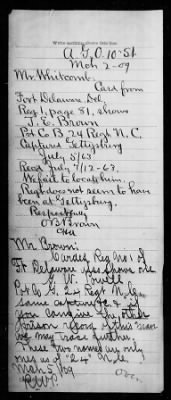 A.G.O. 10-St
Mch 2-09
Mr. Whitcomb:
Card from
Fort Delaware Del.
Reg 1, page 81, shows
J. E. Brown
Pvt Co B. 24 Regt N.C.
Capture Gettysburg
July 5/63
Recd July 7/12-63.
We fail to locate him.
Regt does not seem to have
been at Gettysburg.
Respectfully
O B Brown
Mr. Brown:
Card Reg No 1 of
Ft Delaware also shows one
W. Powell
Pvt Co G 24 Regt N.C.
same capture &c. If
you can give the other
person record of this man
we may trace further.
These two names are only
ones as "24" N.C.
Mch 5/09
Over